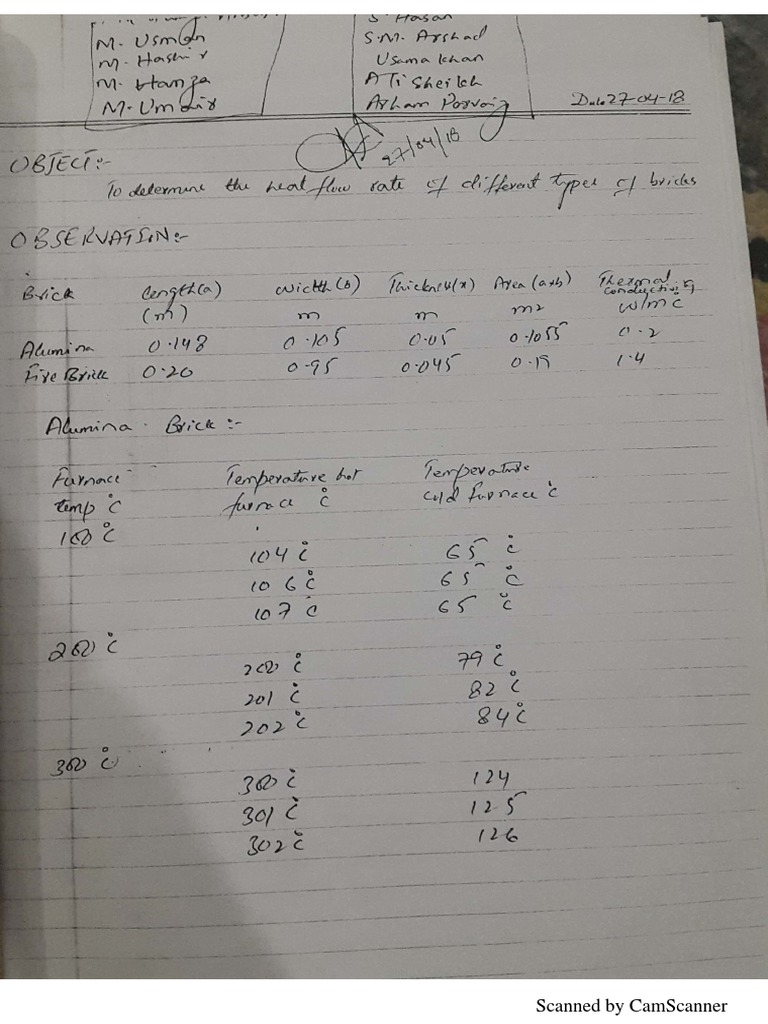 M. Usman
M. Hashir
M. Hamza
M. Umair
S. Hasan
S.M. Arshad
Usama Khan
A Ti Sheikh
Arham Parvaiz
Date 27-04-18
27/04/18
OBJECT:-
To determine the heat flow rate of different types of bricks
OBSERVATION:-
Brick Length(a) Width(b) Thickness(x) Area(axb) Thermal conductivity
(m) m m m2 W/m°C
Alumina 0.148 0.105 0.05 0.1055 0.2
Fire Brick 0.20 0.95 0.045 0.19 1.4
Alumina Brick:-
Furnace Temperature hot Temperature
temp °C furnace °C cold furnace °C
100°C
104°C 65°C
106°C 65°C
107°C 65°C
200°C
200°C 79°C
201°C 82°C
202°C 84°C
300°C
300°C 124
301°C 125
302°C 126
Scanned by CamScanner